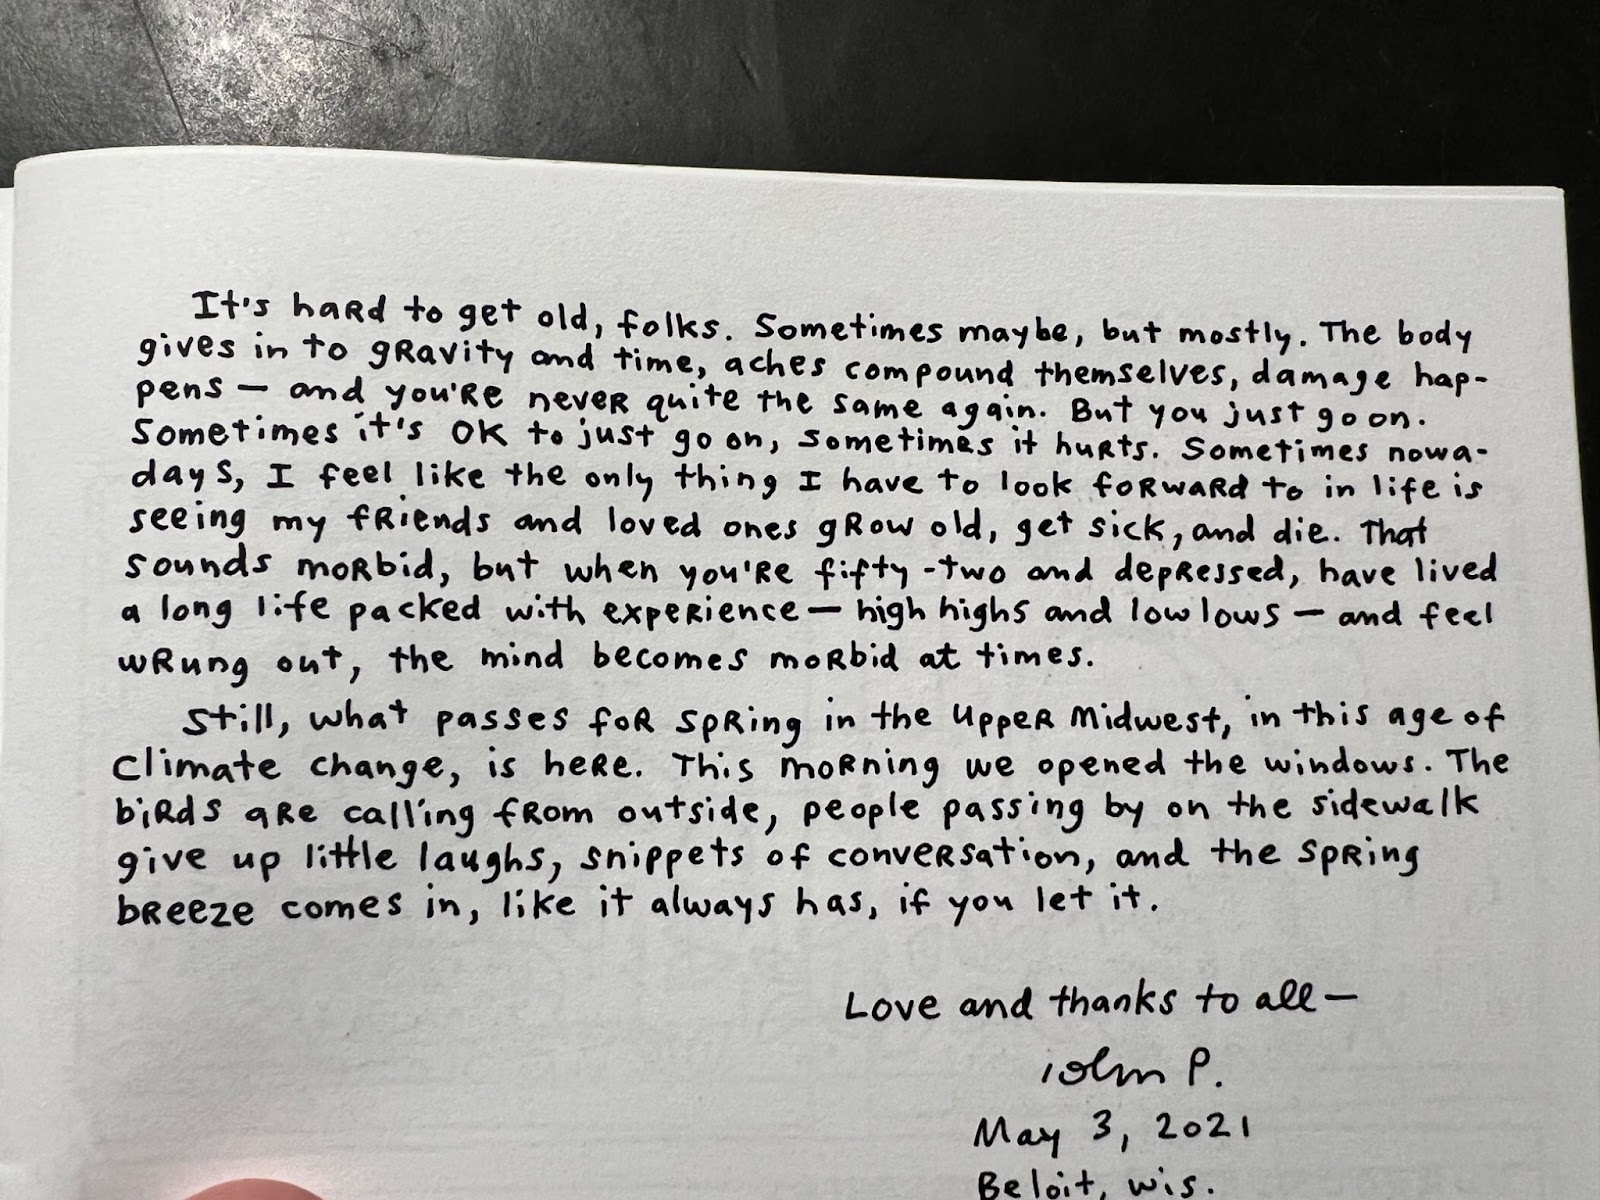 It's hard to get old, folks. Sometimes maybe, but mostly. The body
gives in to gravity and time, aches compound themselves, damage hap-
pens — and you're never quite the same again. But you just go on.
Sometimes it's OK to just go on, sometimes it hurts. Sometimes nowa-
days, I feel like the only thing I have to look forward to in life is
seeing my friends and loved ones grow old, get sick, and die. That
sounds morbid, but when you're fifty-two and depressed, have lived
a long life packed with experience — high highs and low lows — and feel
wrung out, the mind becomes morbid at times.
Still, what passes for spring in the Upper Midwest, in this age of
climate change, is here. This morning we opened the windows. The
birds are calling from outside, people passing by on the sidewalk
give up little laughs, snippets of conversation, and the spring
breeze comes in, like it always has, if you let it.
Love and thanks to all —
John P.
May 3, 2021
Beloit, Wis.